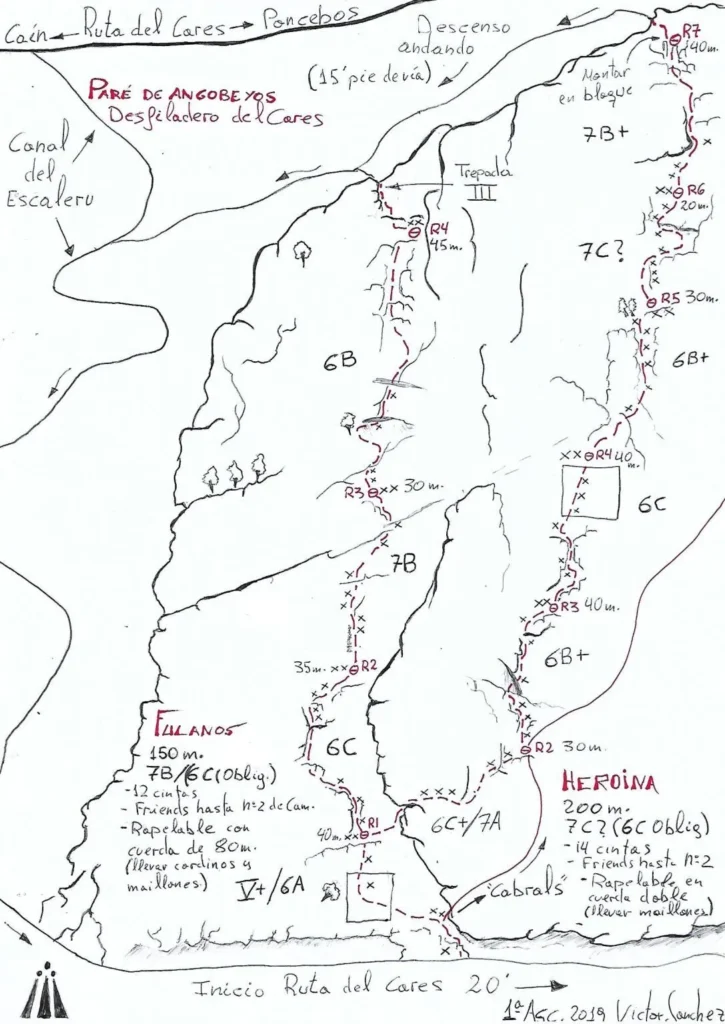 Caín ← Ruta del Cares → Poncebos
Descenso
andando
(15' pie de vía)
PARÉ DE ANGOBEYOS
Desfiladero del Cares
Canal
del
Escaleru
Trepada
III
R4
45 m.
6B
R3
30 m.
7B
35 m.
R2
6C
R1
40 m.
V+/6A
FULANOS
150 m.
7B/6C (Oblig.)
- 12 cintas
- Friends hasta nº2 de Cam.
- Rapelable con
cuerda de 80 m.
(llevar cordinos y
maillones)
R7
40 m.
Montar
en bloque
7B+
R6
20 m.
7C?
R5 30 m.
6B+
R4 40
m.
6C
R3 40 m.
6B+
R2 30 m.
6C+/7A
HEROINA
200 m.
7C? (6C Oblig)
- 14 cintas
- Friends hasta nº2
- Rapelable en
cuerda doble
(llevar maillones)
"Cabrals"
Inicio Ruta del Cares 20' →
1ª Asc. 2019 Victor Sanchez